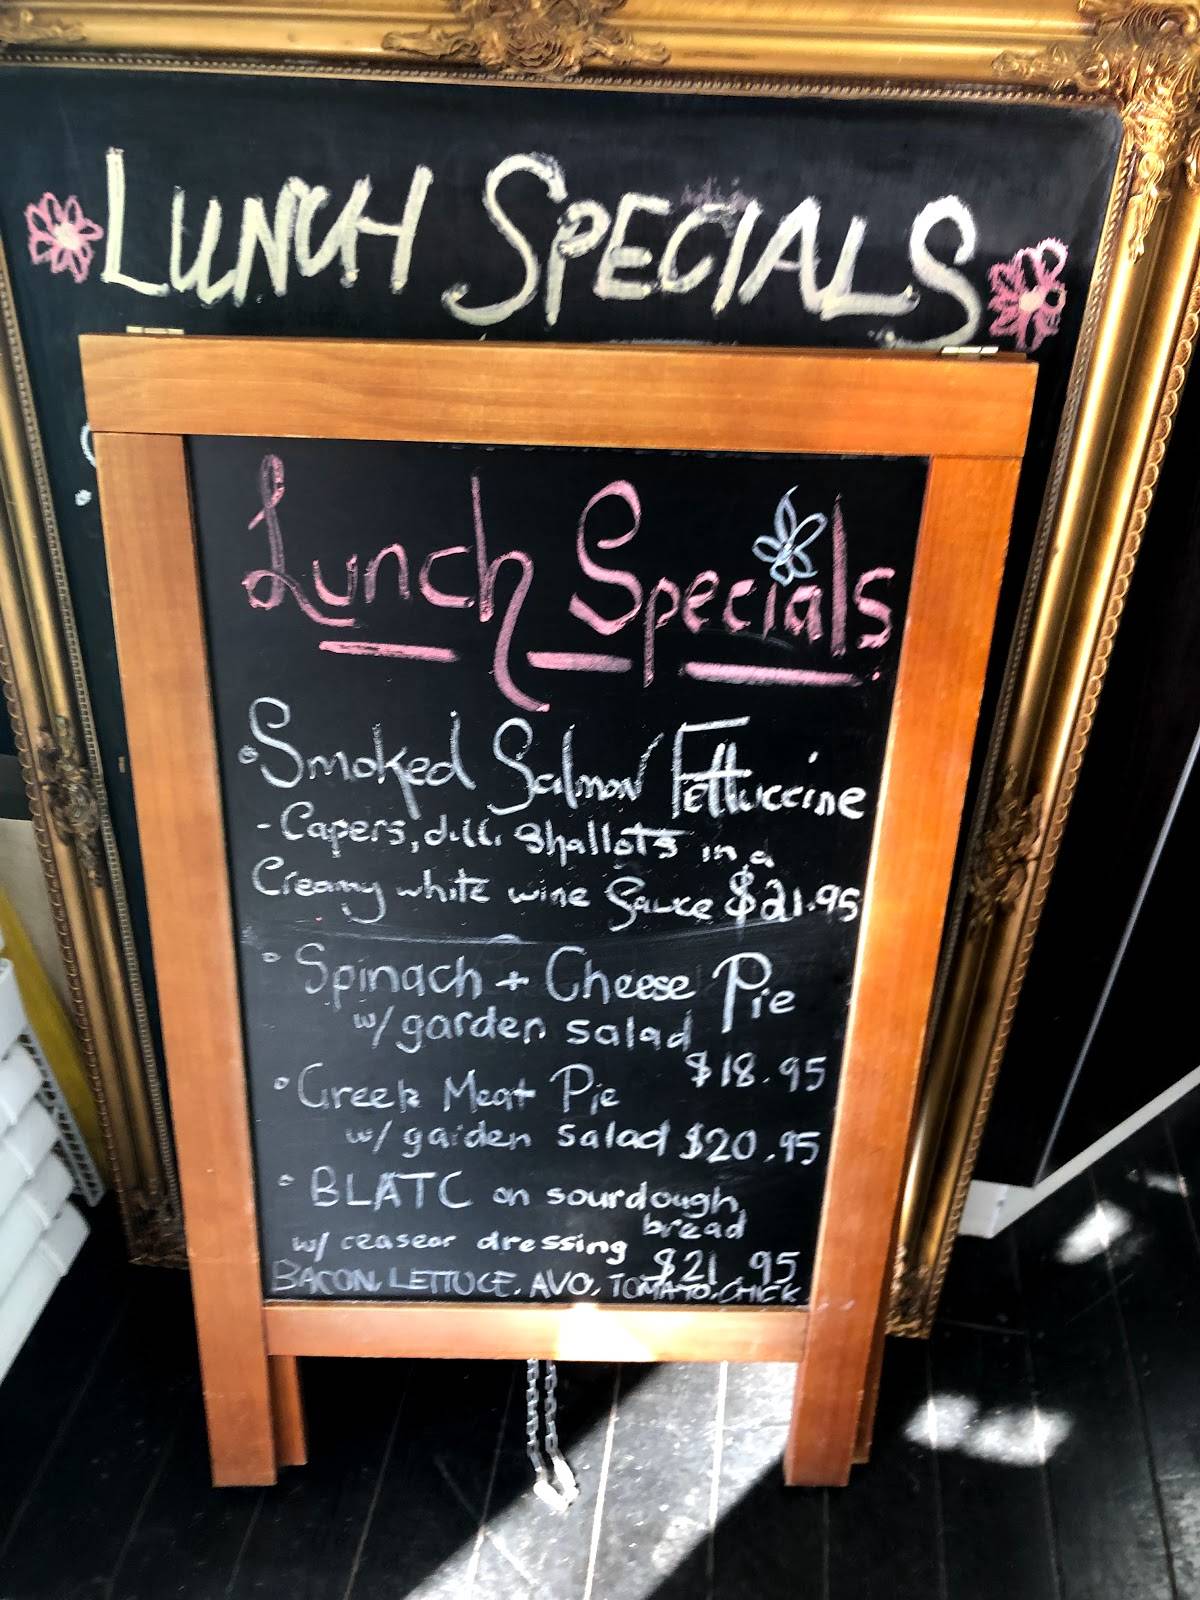 LUNCH SPECIALS
Lunch Specials
• Smoked Salmon Fettuccine
- Capers, dill, shallots in a
Creamy white wine Sauce $21.95
• Spinach + Cheese Pie
w/ garden salad
$18.95
• Greek Meat Pie
w/ garden salad $20.95
• BLATC on sourdough
bread
w/ ceasear dressing $21.95
BACON, LETTUCE, AVO, TOMATO, CHICK